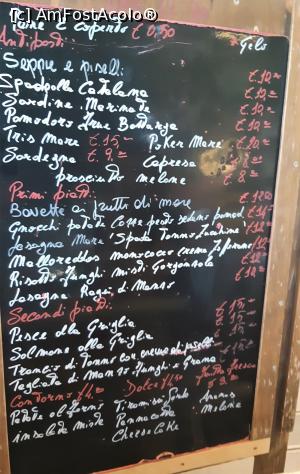 (c) AmFostAcolo®
Pane e coperto € 0,50
Antipasti:
Seppie e piselli € 10,=
Spadella Catalana € 10,=
Sardine Marinate € 10,=
Pomodoro
Tris Mare € 15,= Poker Mare
Sardegna € 9,= Caprese € 8,=
prosciutto melone € 8,=
Primi piatti:
Bavette ai frutti di mare € 12,00
Gnocchi patate pesto
Lasagna Mare Spada Tonno Zucchine € 12,=
Malloreddus crema Zafferano € 12,=
Risotto Funghi misti Gorgonzola € 12,=
Lasagna Ragù di Manzo
Secondi piatti:
Pesce alla Griglia € 15,=
Salmone alla Griglia € 15,=
Trancio di Tonno con crema € 15,=
Tagliata di Manzo Funghi e Grana € 15,=
Contorno € 4,00 Dolce € 4,50 Frutta fresca
Patate al forno Tiramisù Ananas
insalate miste Pannacotta Melone
Cheesecake